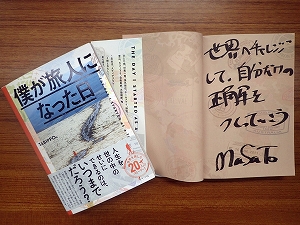 僕が旅人に
なった日
TABIPPO.
人生を
世の中の
せいにできるのは、
いつまで
だろう?
20
THE DAY I STARTED AS
世界へチャレンジ
して、自分だけの
正解を
つくっていこう
MaSaTo